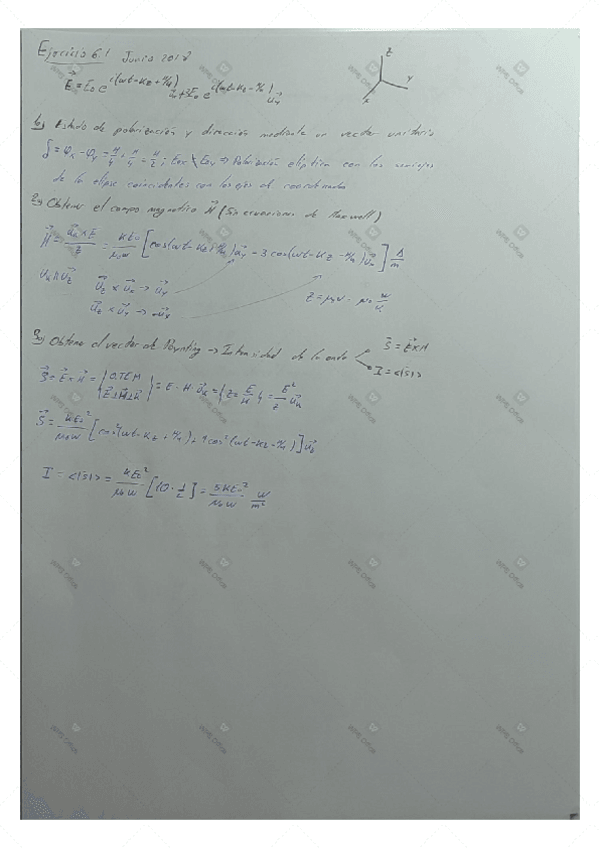 Ejercicio 6.1 Junio 2018
z
E⃗ = E₀ e^{i(ωt-kz+π/4)} u⃗ₓ+3E₀ e^{i(ωt-kz-π/4)} u⃗_y
y
x
Estado de polarización y dirección mediante un vector unitario
δ = φₓ - φ_y = π/4 + π/4 = π/2 ; ⇒ Polarización elíptica con los semiejes
de la elipse coincidentes con los ejes de coordenadas
Obtener el campo magnético H⃗ (Sin ecuaciones de Maxwell)
H⃗ = u⃗ₖ×E⃗/z = kE₀/μ₀ω [cos(ωt-kz+π/4)u⃗_y - 3cos(ωt-kz-π/4)u⃗ₓ] A/m
u⃗_z × u⃗ₓ → u⃗_y
u⃗_z × u⃗_y → -u⃗ₓ
z = μ₀v = μ₀ ω/k
Obtener el vector de Poynting → Intensidad de la onda
S⃗ = E⃗×H⃗
I = <|S|>
S⃗ = E⃗×H⃗ = {O.T.E.M E⃗⊥H⃗⊥k⃗} = E·H·u⃗ₖ = {z = E/H} = E²/z u⃗ₖ
S⃗ = kE₀²/μ₀ω [cos²(ωt-kz+π/4)+9cos²(ωt-kz-π/4)]u⃗_z
I = <|S⃗|> = kE₀²/μ₀ω [10·1/2] = 5kE₀²/μ₀ω W/m²